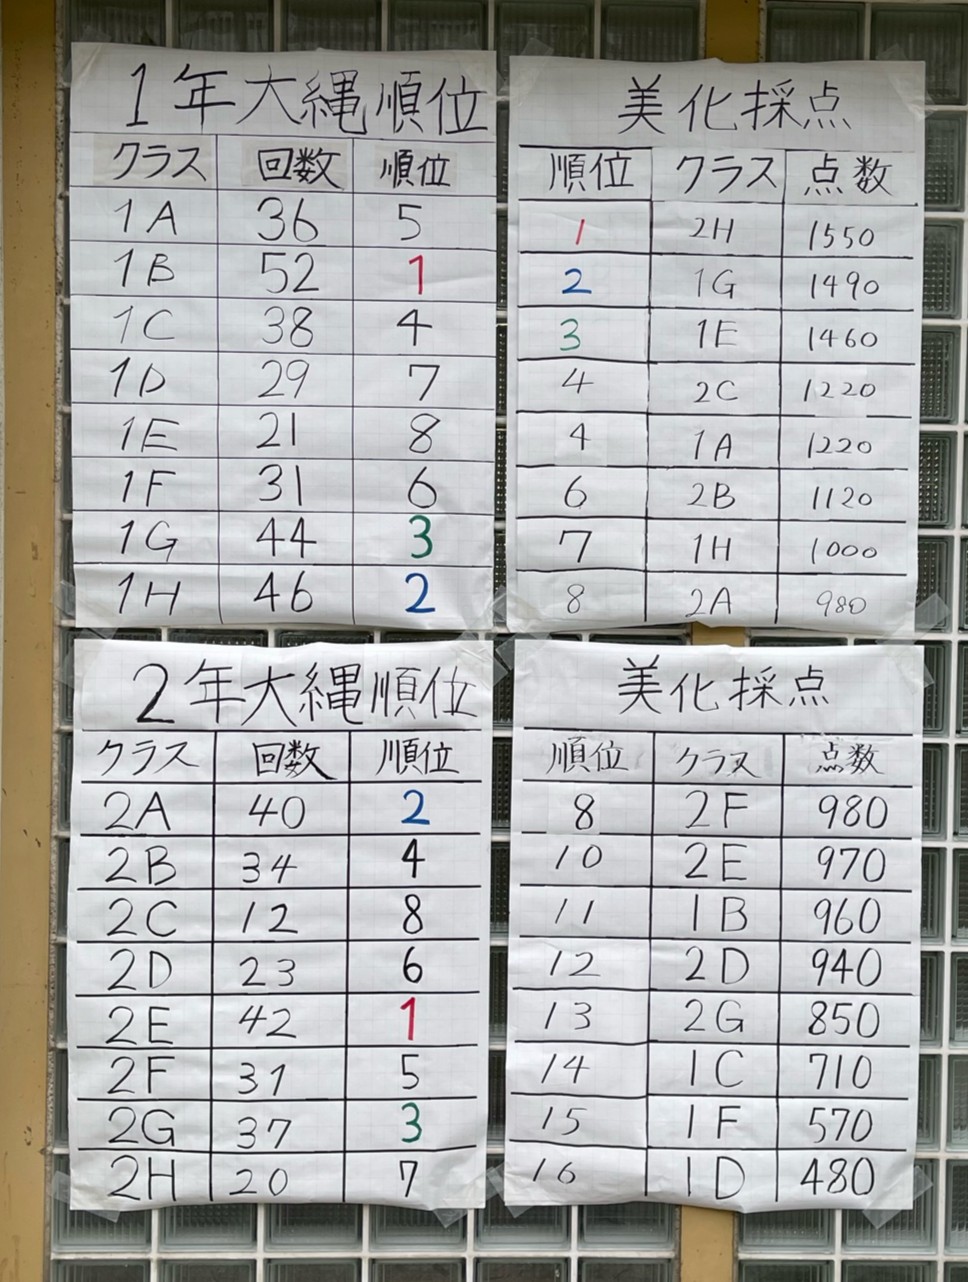 1年大縄順位
クラス 回数 順位
1A 36 5
1B 52 1
1C 38 4
1D 29 7
1E 21 8
1F 31 6
1G 44 3
1H 46 2
美化採点
順位 クラス 点数
1 2H 1550
2 1G 1490
3 1E 1460
4 2C 1220
4 1A 1220
6 2B 1120
7 1H 1000
8 2A 980
2年大縄順位
クラス 回数 順位
2A 40 2
2B 34 4
2C 12 8
2D 23 6
2E 42 1
2F 31 5
2G 37 3
2H 20 7
美化採点
順位 クラス 点数
8 2F 980
10 2E 970
11 1B 960
12 2D 940
13 2G 850
14 1C 710
15 1F 570
16 1D 480